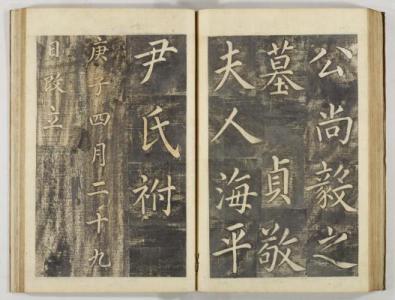 公尚毅之
墓貞敬
夫人海平
尹氏祔
庚子四月二十九
日改立